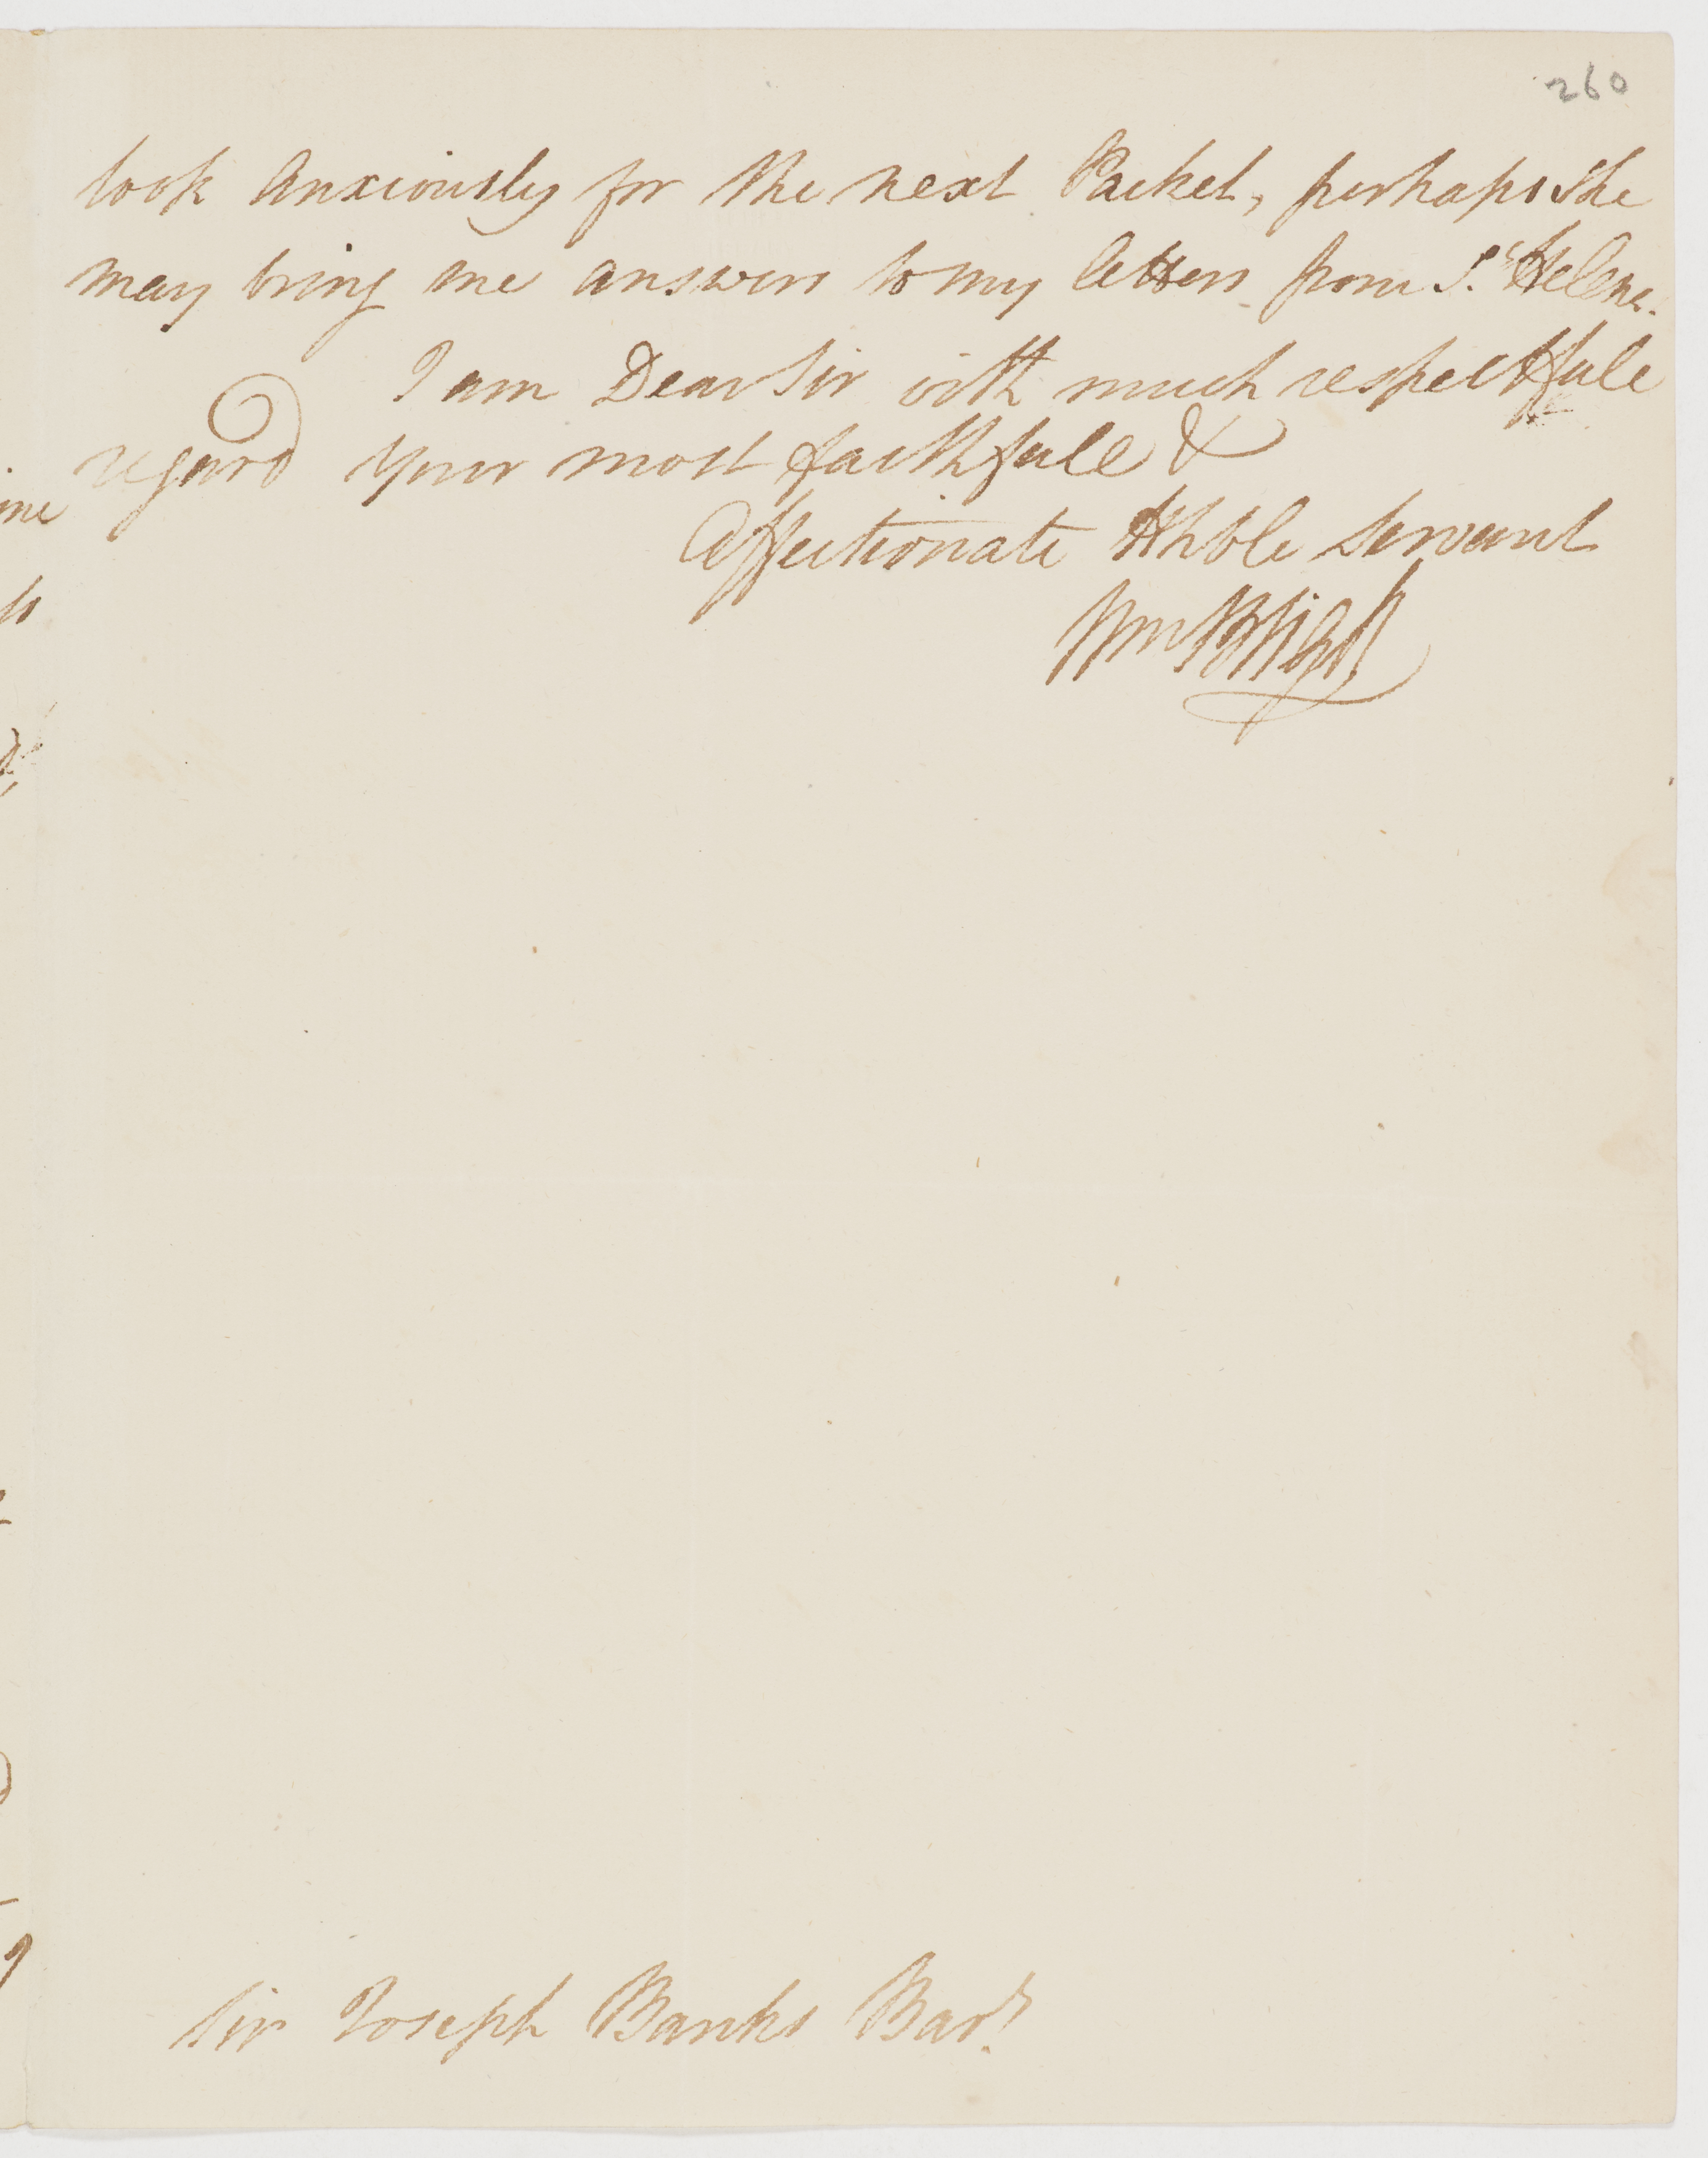 260
look Anxiously for the next Packet, perhaps she
may bring me answers to my letters from St. Helena.
I am Dear Sir with much respectfull
regard your most faithfull &
Affectionate Hhble Servant
Wm Bligh
me
to
Sir Joseph Banks Bart.